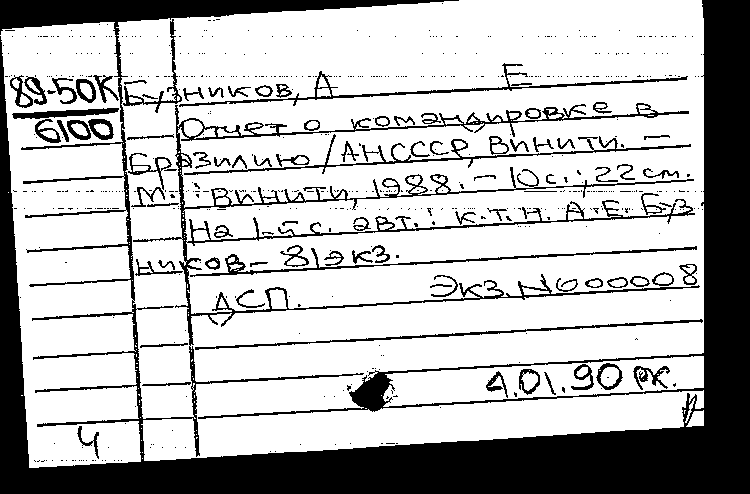 89-50К Бузников, А Е
6100 Отчет о командировке в
Бразилию / АНСССР, ВИНИТИ. —
М. : ВИНИТИ, 1988. – 10с.; 22 см.
На 1-й с. авт.: к.т.н. А.Е. Буз
ников.– 81экз.
ДСП. Экз.N000008
4.01.90 РК.
4